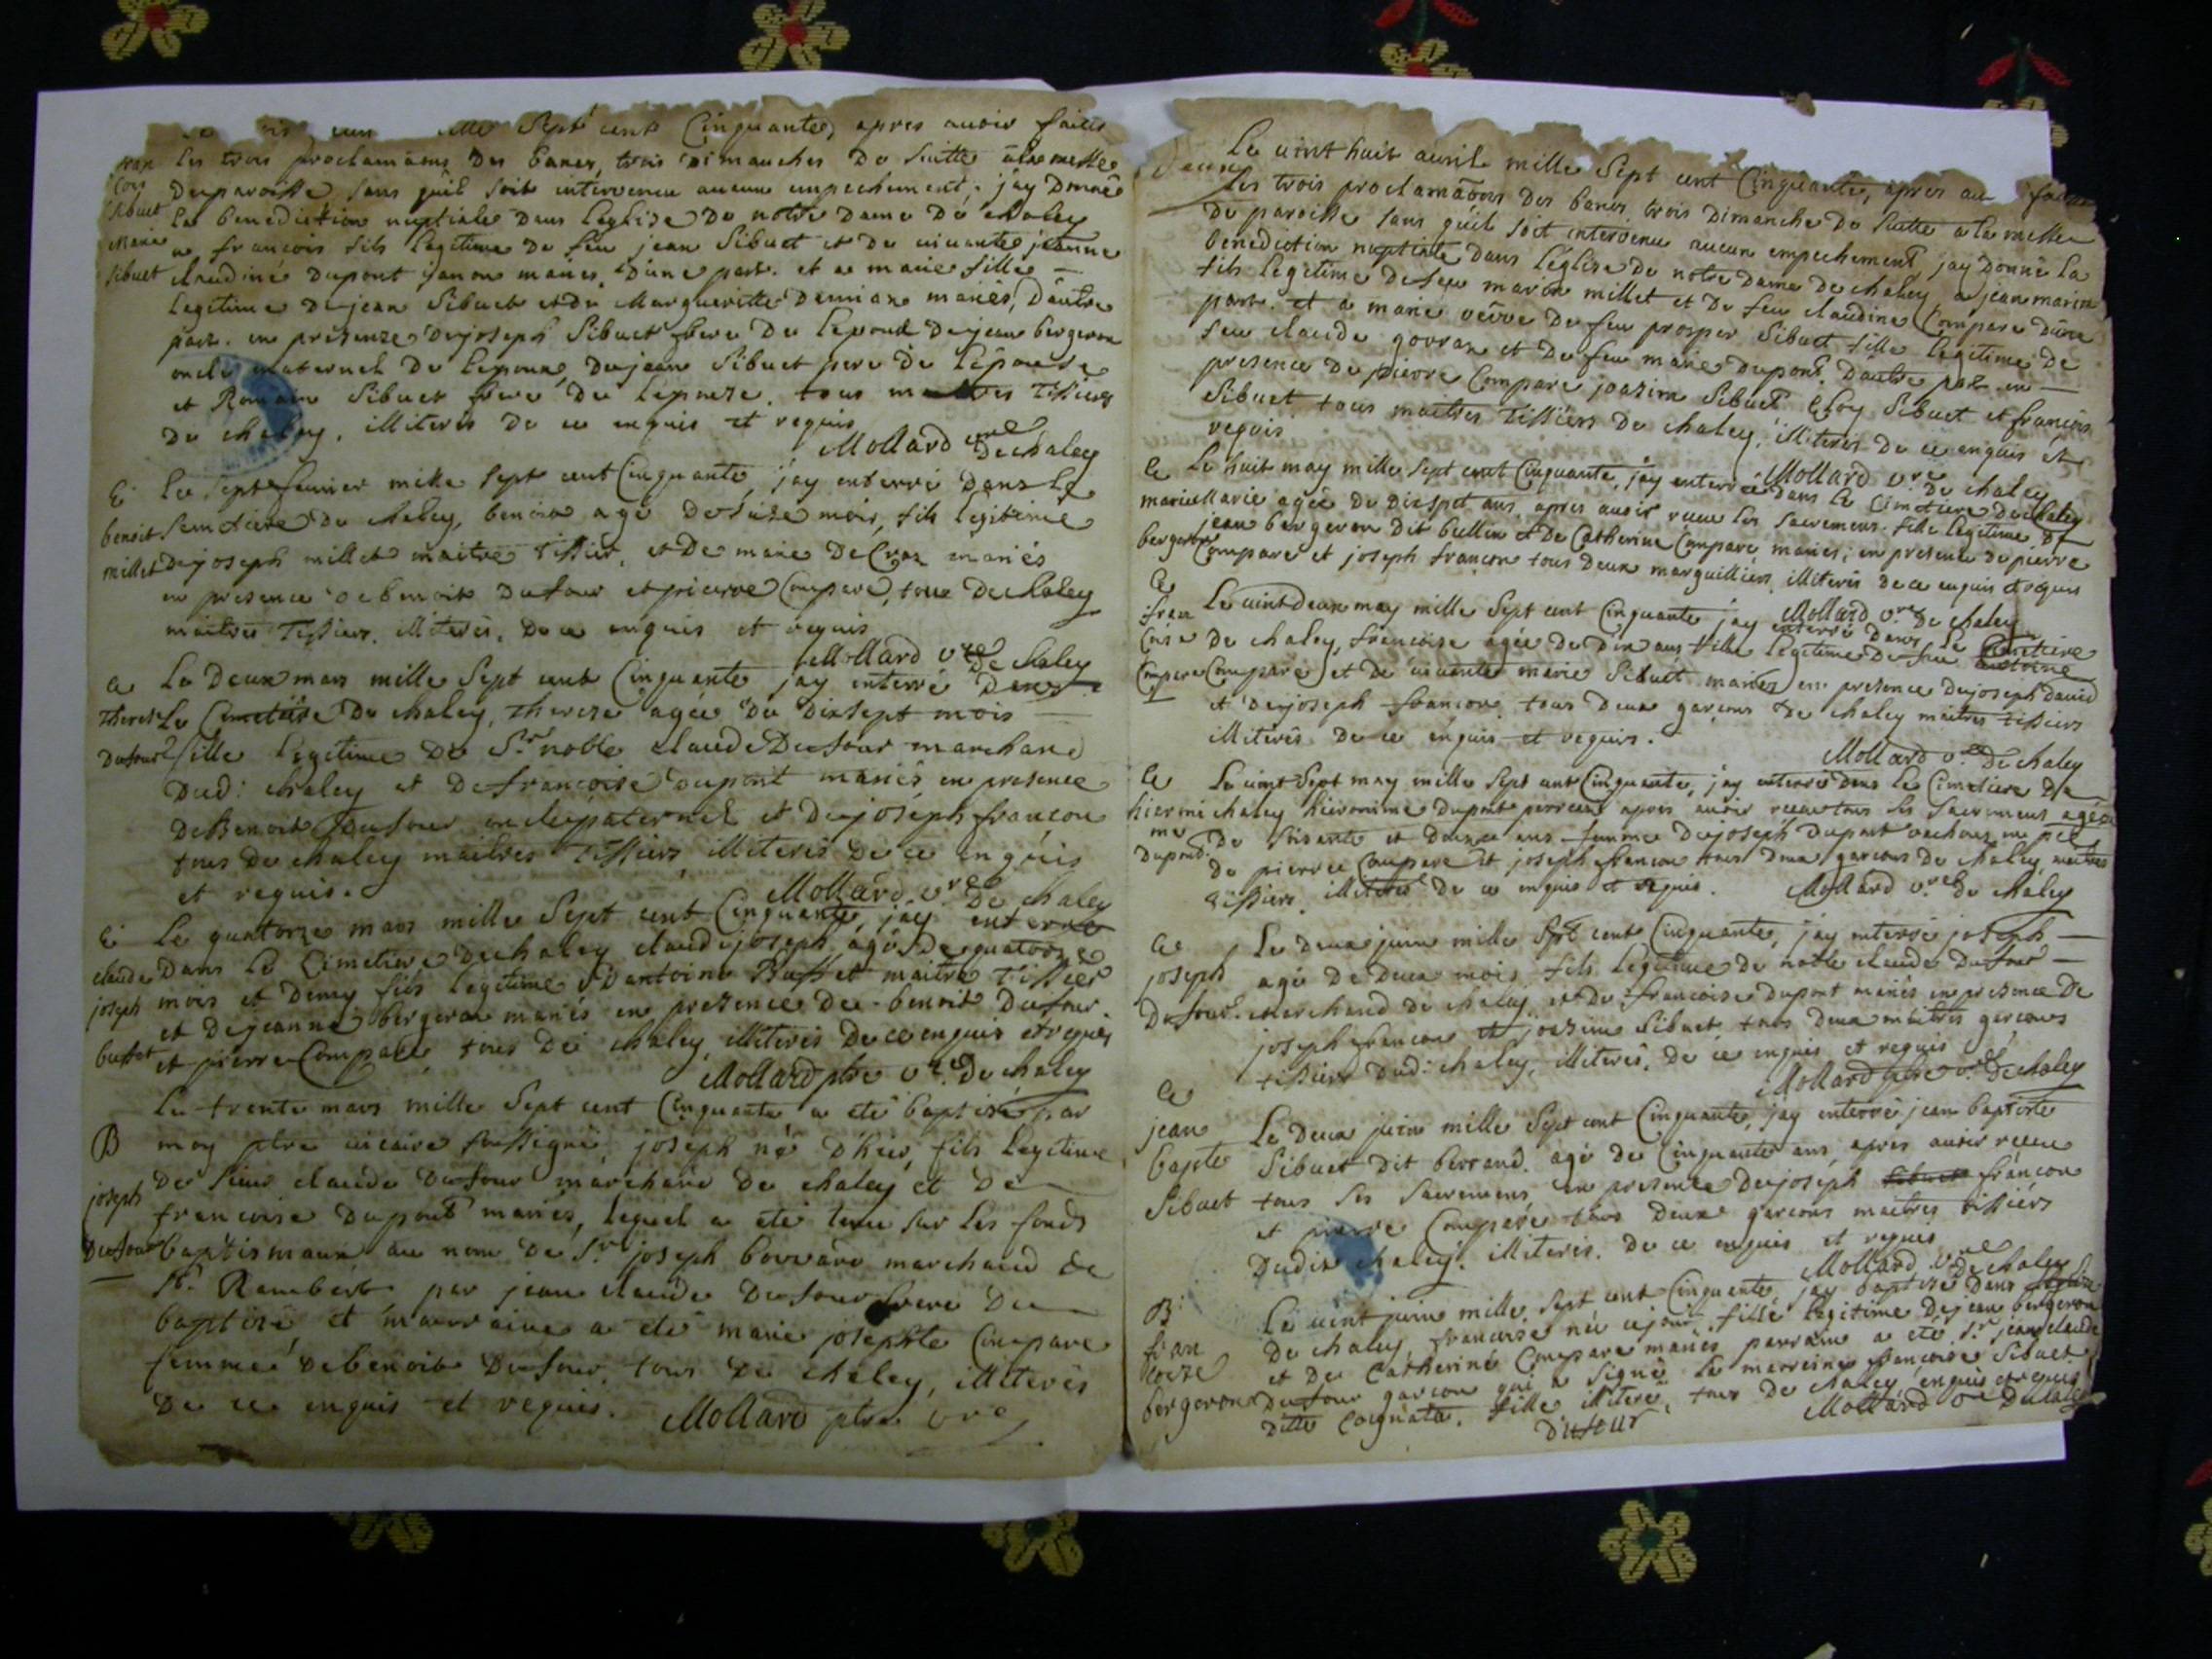 mille Sept cent Cinquante, apres avoir faites
fran les trois proclamãons des bancs, trois dimanches de suitte à la messe
cois de paroisse sans qu'il soit intervenu aucun empechement; j'ay donné
Sibuet la benediction nuptiale dans l'eglise de notre dame de chaley
Marie a francois fils legitime de feu jean Sibuet et de vivante jeanne
sibuet claudine dupont mariés, d'une part. et a marie fille
legitime de jean Sibuet et de Margueritte Damian mariés, d'autre
part. en presence de joseph Sibuet frere de l'epoux de jean bergeron
oncle maternel de l'epoux, de jean Sibuet pere de l'epouse
et Romain Sibuet frere de l'epouse. tous maitres Tissiers
de chaley. illiterés de ce enquis et requis
Mollard vre de chaley
E Le sept feuvier mille sept cent Cinquante, j'ay enterré dans le
benoit Semetiere de chaley, benoit agé de seize mois, fils legitime
millet de joseph millet maitre Tissier, et de marie de Croz mariés
en presence de benoit dufour et pierre Compare, tous de chaley
maitres Tissiers, illiterés, de ce enquis et requis
Mollard vre de chaley
e Le deux mars mille Sept cent Cinquante j'ay enterré dans
Therese Le Cimetiere de chaley, Therese agée de dixsept mois
dufour fille legitime de Sr noble Claude Dufour marchand
dud: chaley et de francoise dupont mariés en presence
de Benoit dufour oncle paternel et de joseph francon
tous de chaley maitres Tissiers illiterés de ce enquis
et requis.
Mollard vre de chaley
E Le quatorze mars mille Sept cent Cinquante, j'ay enterré
claude dans le Cimetiere de chaley claude joseph, agé de quatorze
joseph mois et demy fils legitime d'antoine Buffet maitre Tissier
et de jeanne bergeron mariés en presence de benoit dufour
buffet et pierre Compare, tous de chaley, illiterés de ce enquis et requis
Mollard ptre vre de chaley
Le trente mars mille Sept cent Cinquante a eté baptisé par
B moy ptre vicaire soussigné, joseph né d'hier, fils legitime
de sieur claude dufour marchand de chaley et de
joseph francoise dupont mariés, lequel a eté tenu sur les fonds
dufour baptismaux au nom de Sr joseph bovard marchand de
St Rambert par jean claude Dufour frere du
baptisé et marraine a eté marie josephte Compare
femme de benoit dufour, tous de chaley, illiterés
de ce enquis et requis. Mollard ptre vre
Le vint huit avril mille Sept cent Cinquante, apres
Les trois proclamãons des bancs trois Dimanche de suitte a la messe
de paroisse sans qu'il soit intervenu aucun empechement j'ay donné la
benediction nuptiale dans l'église de notre dame de chaley, a jean marin
fils legitime de feu marin millet et de feu claudine Compare d'une
part. et a marie veuve de feu prosper Sibuet fille legitime de
feu claude govran et de feu marie dupont. d'autre part en
presence de pierre Compare joazim Sibuet Sibuet et francois
Sibuet. tous maitres Tissiers de chaley, illiterés de ce enquis et
requis
Mollard vre de chaley
e Le huit may mille sept cent Cinquante, j'ay enterré dans le Cimetiere de chaley
marie Marie agée de dixsept ans, apres avoir receu les sacremens. fille legitime de
jean bergeron dit bullin et de Catherine Compare mariés; en presence de pierre
bergeron Compare et joseph francon tous deux marguilliers, illiterés de ce enquis et requis
Mollard vre de chaley
e
fran Le vintdeux may mille Sept cent Cinquante j'ay enterré dans le Cimetiere
coise de chaley, francoise agée de dix ans fille legitime de feu antoine
Compare Compare et de vivante marie Sibuet mariés en presence de joseph david
et de joseph francon, tous deux garcons de chaley maitres tissiers
illiterés de ce enquis et requis.
Mollard vre de chaley
e Le vint Sept may mille Sept cent Cinquante, j'ay enterré dans le Cimetiere de
hieroni chaley hieronime dupont apres avoir receu tous les sacremens agée
me de soisante et douze ans femme de joseph dupont
dupont de pierre Compare et joseph francon tous deux garcons de chaley, maitres
tissiers, illiterés de ce enquis et requis. Mollard vre de chaley
e Le deux juin mille Sept cent Cinquante, j'ay enterré joseph
joseph agé de deux mois fils legitime de noble claude Dufour
Dufour marchand de chaley et de francoise dupont mariés en presence de
joseph francon et joazim Sibuet tous deux maitres garcons
tissiers dud: chaley, illiterés, de ce enquis et requis
Mollard ptre vre de chaley
e
jean Le deux juin mille Sept cent Cinquante, j'ay enterré jean baptiste
bapte Sibuet dit berrand. agé de Cinquante ans, apres avoir receu
Sibuet tous ses sacremens, en presence de joseph francon
et pierre Compare tous deux garcons maitres tissiers
dudit chaley. illiterés. de ce enquis et requis
Mollard vre de chaley
B Le vint juin mille Sept cent Cinquante, j'ay baptisé dans l'eglise
fran de chaley, francoise née ce jour, fille legitime de jean bergeron
coize et de Catherine Compare mariés parrain a eté Sr jean claude
bergeron dufour garcon qui a signé la marreine francoise Sibuet
ditte Coignata. fille illiteré, tous de chaley enquis et requis
dufour Mollard vre de chaley